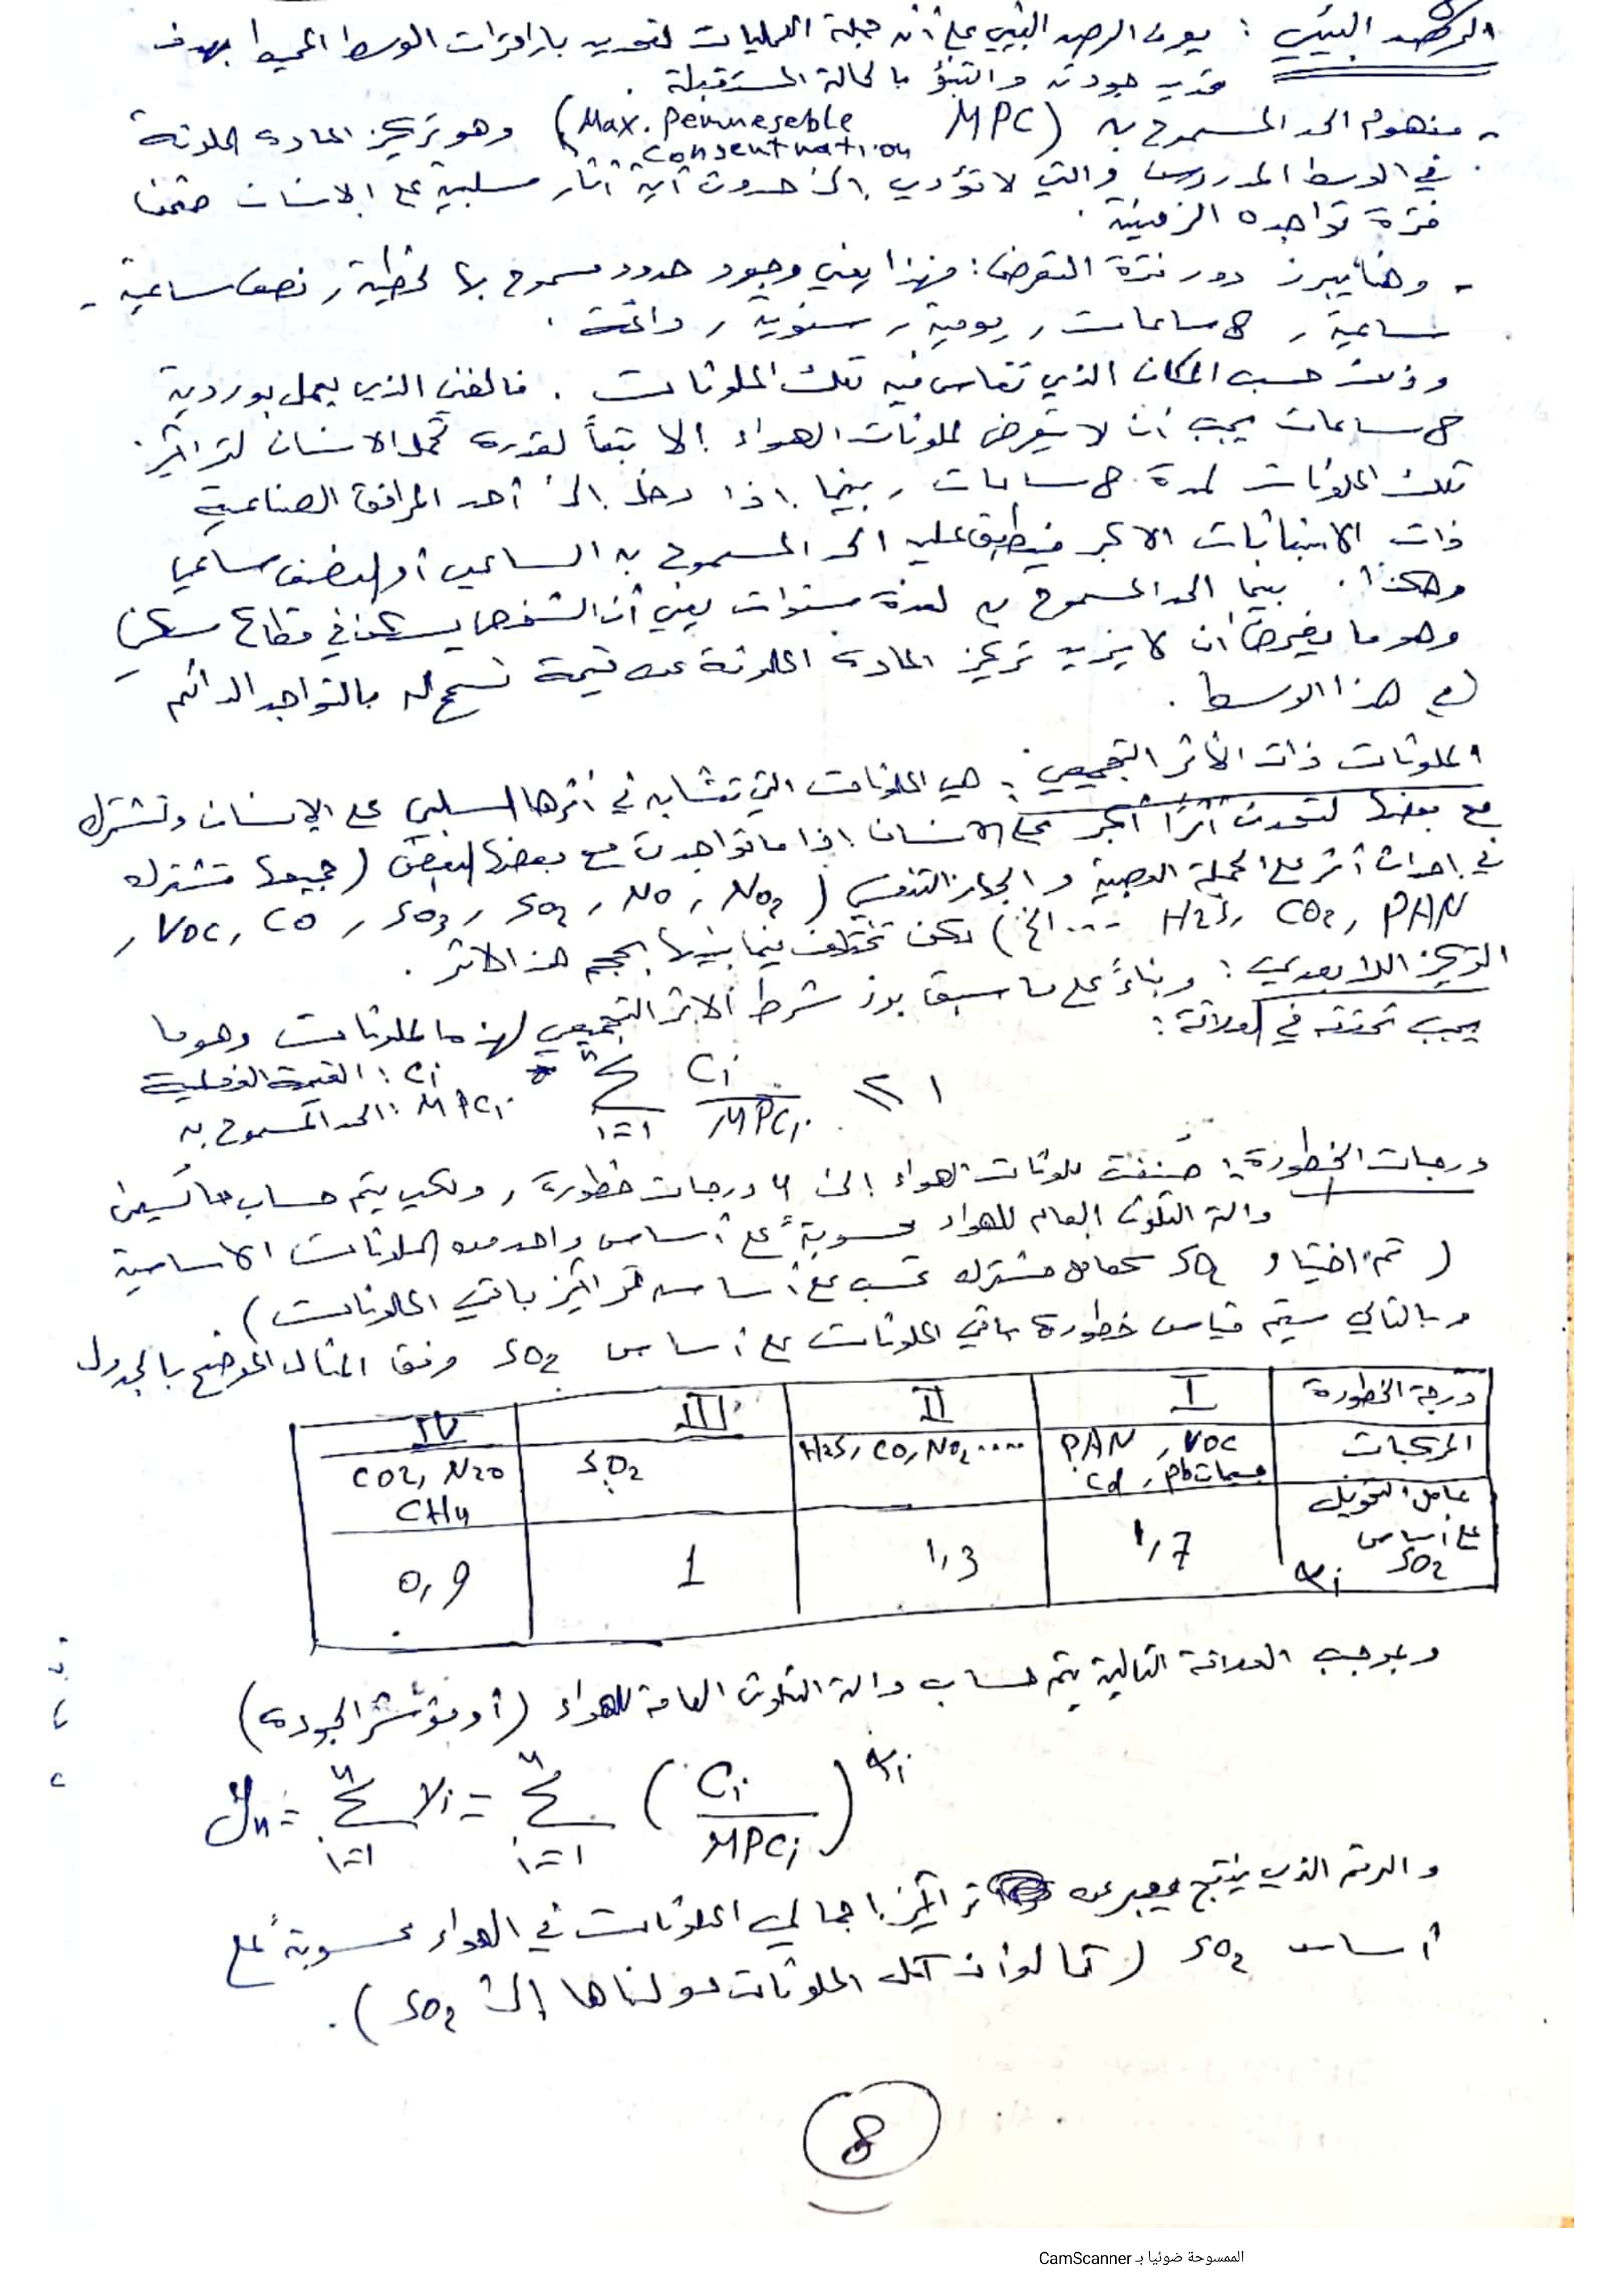 الرصد البيئي : يعرف الرصد البيئي على أنه جملة العمليات لتحديد بارامترات الوسط المحيط بهدف
تحديد جودته والتنبؤ بالحالة المستقبلة .
- مفهوم الحد المسموح به (MPC Max. Permeseble Consentnation) وهو تركيز المادة الملوثة
في الوسط المدروس والتي لا تؤدي إلى حدوث أية آثار سلبية على الإنسان ضمن
فترة تواجده الزمنية .
- وهنا يبرز دور فترة التعرض : فهذا يعني وجود حدود مسموح بها لحظية , نصف ساعية -
ساعية , 8 ساعات , يومية , سنوية , دائمة .
وذلك حسب المكان الذي تقاس فيه تلك الملوثات . فالفني الذي يعمل بوردية
8 ساعات يجب أن لا يتعرض لملوثات الهواء إلا تبعاً لقدرة تحمل الانسان لتراكيز
تلك الملوثات لمدة 8 ساعات , بينما اذا دخل إلى أحد المرافق الصناعية
ذات الانبعاثات الاكبر فيطبق عليه الحد المسموح به الساعي أو النصف ساعي
وهكذا . بينما الحد المسموح به لعدة سنوات يعني أن الشخص يسكن في قطاع سكني
وهو ما يفرض أن لا يزيد تركيز المادة الملوثة عن قيمة تسمح له بالتواجد الدائم
في هذا الوسط .
الملوثات ذات الأثر التجميعي : هي الملوثات التي تتشابه في أثرها السلبي على الإنسان وتشترك
مع بعضها لتحدث أثراً أكبر على الانسان إذا ما تواجدت مع بعضها البعض (جميعها تشترك
في إحداث أثر على الجملة العصبية والجهاز التنفسي ( NO2 , NO , SO2 , SO3 , CO , VOC ,
PAN , CO2 , H2S .... الخ ) لكن تختلف فيما بينها بحجم هذا الاثر .
التركيز اللابعدي : وبناءً على ما سبق برز شرط الاثر التجميعي لهذه الملوثات وهو ما
يجب تحققه في العلاقة :
n Σ i=1 Ci / MPCi ≤ 1
Ci : القيمة الفعلية
MPCi : الحد المسموح به
درجات الخطورة : صُنفت ملوثات الهواء إلى 4 درجات خطورة , ولكي يتم حساب ما يسمى
دالة التلوث العام للهواء محسوبة على أساس واحد من الملوثات الاساسية
( تم اختيار SO2 كعامل مشترك تحسب على أساسه تراكيز باقي الملوثات ) .
وبالتالي سيتم قياس خطورة باقي الملوثات على أساس SO2 وفق المثال الموضح بالجدول
درجة الخطورة I II III IV
المركبات PAN , VOC جسيمات Pb , Cd H2S, CO, NO2 ..... SO2 CO2, N2O CH4
عامل التحويل على أساس SO2 αi 1,7 1,3 1 0,9
وبموجب العلاقة التالية يتم حساب دالة التلوث العامة للهواء (أو مؤشر الجودة)
Yn = n Σ i=1 Yi = n Σ i=1 ( Ci / MPCi )αi
والرقم الذي ينتج يعبر عن تراكيز إجمالي الملوثات في الهواء محسوبة على
أساس SO2 ( كما لو أن كل الملوثات حولناها إلى SO2 ) .
8
الممسوحة ضوئيا بـ CamScanner